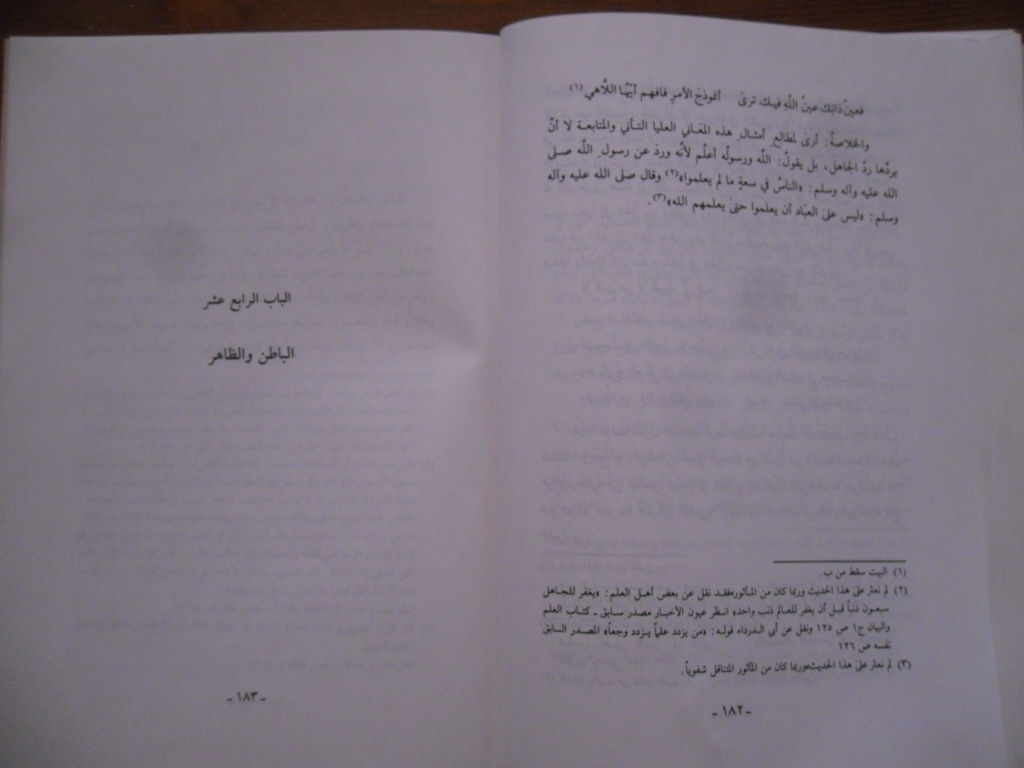 فعينُ ذاتِك عينُ اللهِ فيك ترىٰ أنموذجَ الأمرِ فافهم أيّها اللَّاهي (١)
والخلاصةُ: أرى لمطالِعِ أمثال هذه المعاني العليا التأني والمتابعة لا أنْ
يردَّها ردَّ الجاهل، بل يقولُ: اللَّه ورسولُه أعلَم لأنَّه وردَ عن رسولِ اللَّه صلى
الله عليه وآله وسلم: «الناسُ في سعةٍ ما لم يعلموا» (٢) وقال صلى الله عليه وآله
وسلم: «ليس على العبَاد أن يعلموا حتىٰ يعلمهم الله» (٣).
(١) البيت سقط من ب.
(٢) لم نعثر على هذا الحديث وربما كان من المأثور فقد نقل عن بعض أهل العلم: «يغفر للجاهل
سبعون ذنباً قبل أن يغفر للعالم ذنب واحد» انظر عيون الأخبار مصدر سابق ـ كتاب العلم
والبيان ج١ ص ١٢٥ ونقل عن أبي الدرداء قوله: «من يزدد علماً يزدد وجعاً» المصدر السابق
نفسه ص ١٢٦
(٣) لم نعثر على هذا الحديث وربما كان من المأثور المتناقل شفوياً.
ـ ١٨٢ ـ
الباب الرابع عشر
الباطن والظاهر
ـ ١٨٣ ـ